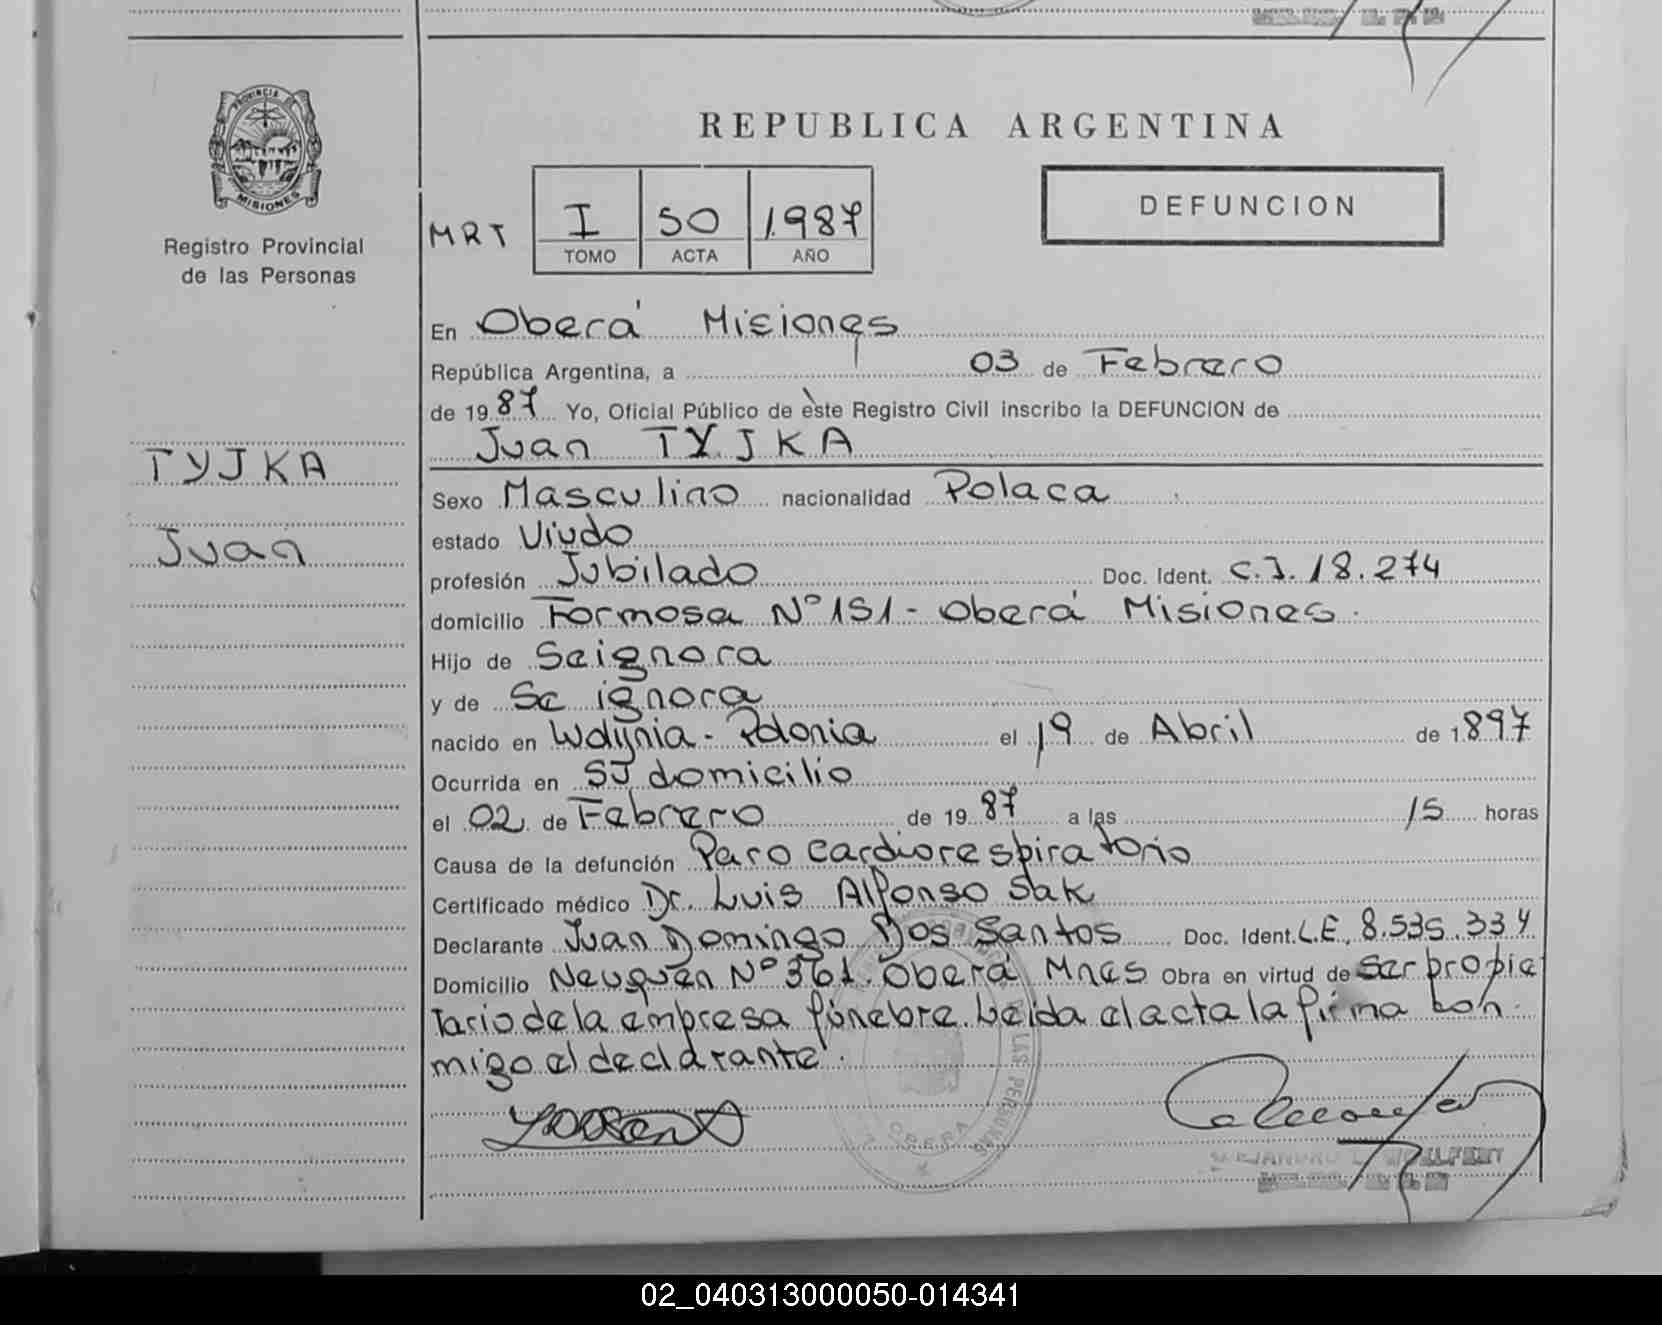 REPUBLICA ARGENTINA
PROVINCIA DE
MISIONES
Registro Provincial
de las Personas
MRT
I
50
1987
TOMO
ACTA
AÑO
DEFUNCION
En Oberá Misiones
República Argentina, a 03 de Febrero
de 1987 Yo, Oficial Público de este Registro Civil inscribo la DEFUNCION de
Juan TYJKA
TYJKA
Juan
Sexo Masculino nacionalidad Polaca
estado Viudo
profesión Jubilado Doc. Ident. C.I. 18.274
domicilio Formosa Nº 151 - Oberá Misiones.
Hijo de Se ignora
y de Se ignora
nacido en Wolynia - Polonia el 19 de Abril de 1897
Ocurrida en SJ domicilio
el 02 de Febrero de 1987 a las 15 horas
Causa de la defunción Paro cardiorespiratorio
Certificado médico Dr. Luis Alfonso Sak
Declarante Juan Domingo Dos Santos Doc. Ident. L.E. 8.535.334
Domicilio Neuquén Nº 361. Oberá Mnes Obra en virtud de ser propie
tario de la empresa fúnebre. Leida el acta la firma con
migo el declarante.
LAS PERSONAS
OBERA
02_040313000050-014341